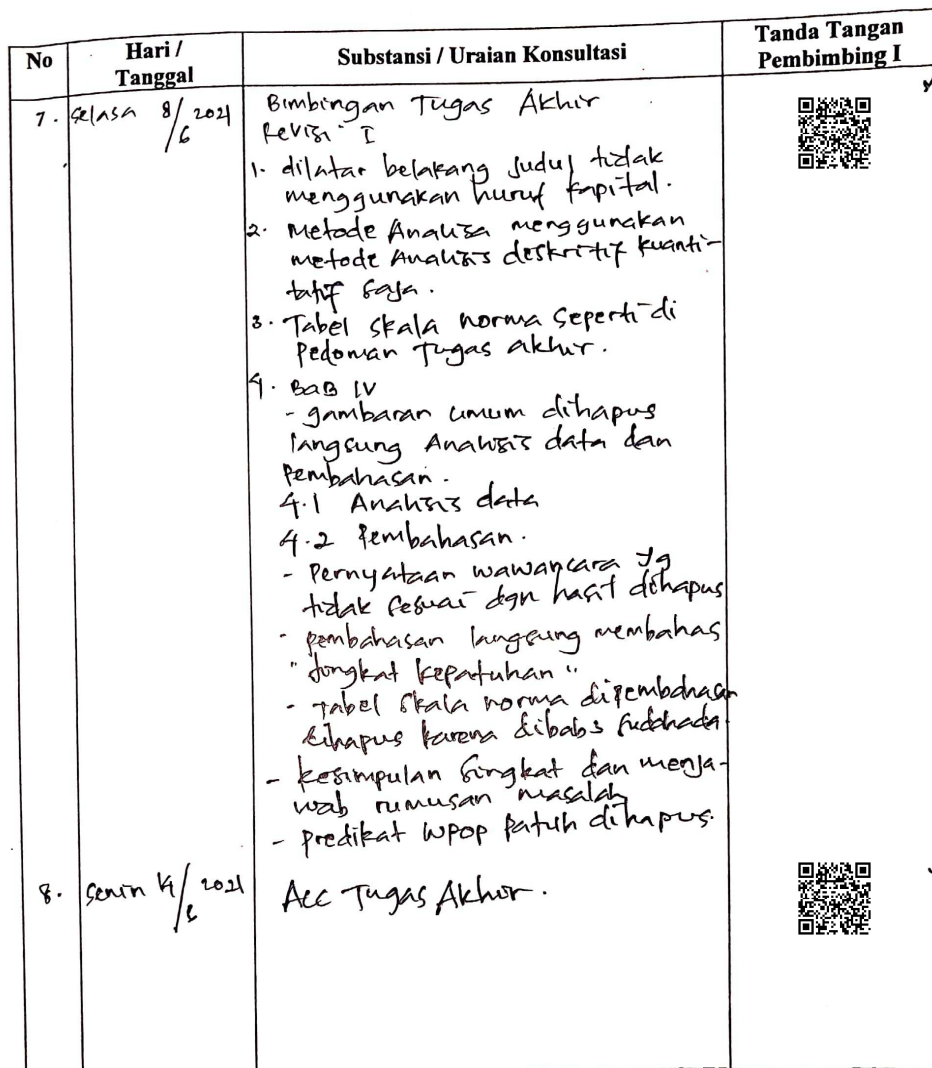 No
Hari /
Tanggal
Substansi / Uraian Konsultasi
Tanda Tangan
Pembimbing I
7. Selasa 8/6 2021
Bimbingan Tugas Akhir
Revisi I
1. dilatar belakang judul tidak
menggunakan huruf kapital.
2. Metode Analisa menggunakan
metode Analisis deskritif kuanti-
tatif saja.
3. Tabel skala norma seperti di
Pedoman Tugas akhir.
4. BaB IV
- gambaran umum dihapus
langsung Analisis data dan
Pembahasan.
4.1 Analisis data
4.2 Pembahasan.
- Pernyataan wawancara yg
tidak sesuai dgn hasil dihapus
- pembahasan langsung membahas
"tingkat kepatuhan"
- Tabel skala norma dipembahasan
dihapus karena dibab3 sudahada
- kesimpulan singkat dan menja-
wab rumusan masalah
- predikat WPOP patuh dihapus.
8. Senin 14/6 2021
Acc Tugas Akhir.